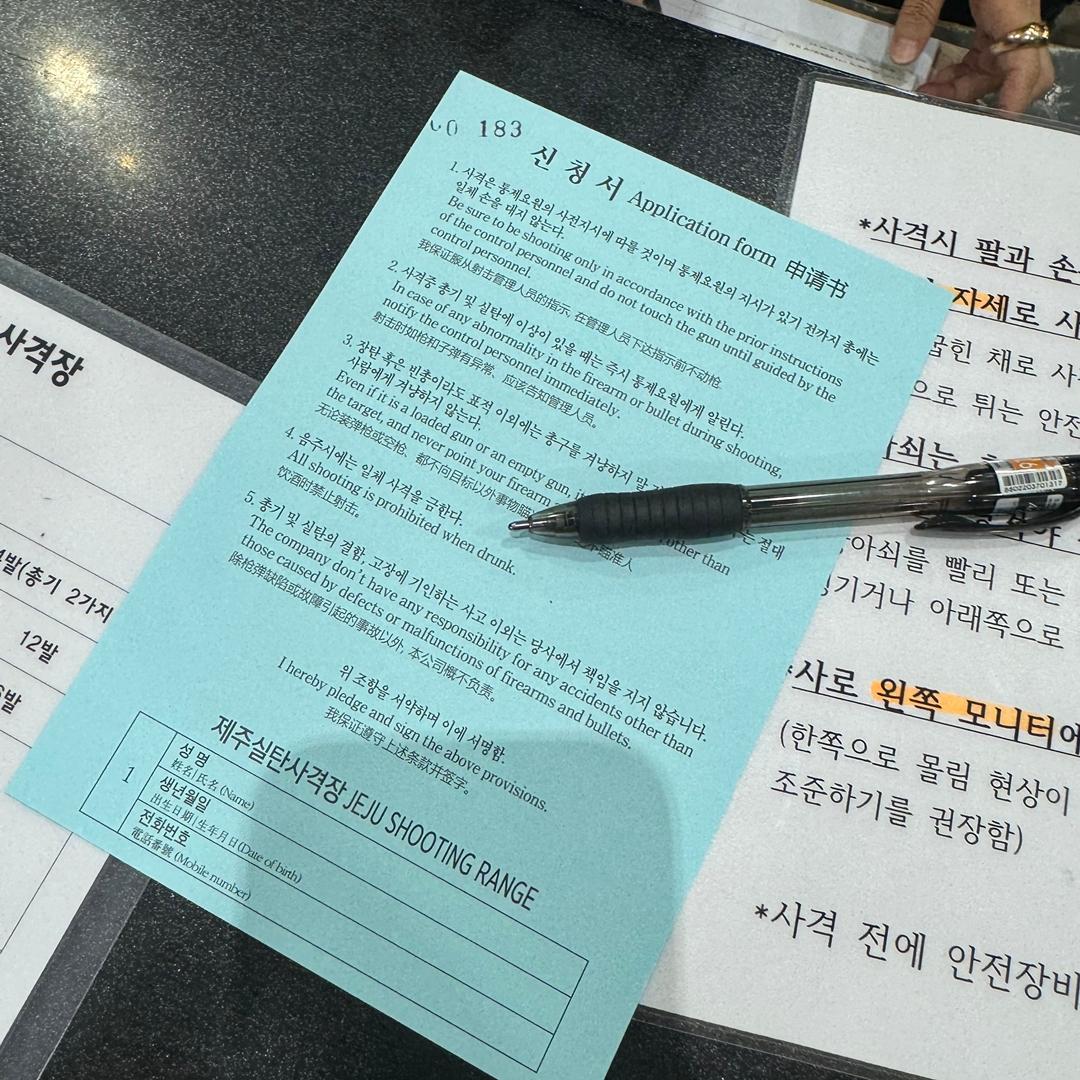 183
신 청 서 Application form 申请书
1. 사격은 통제요원의 사전지시에 따를 것이며 통제요원의 지시가 있기 전까지 총에는
일체 손을 대지 않는다.
Be sure to be shooting only in accordance with the prior instructions
of the control personnel and do not touch the gun until guided by the
control personnel.
我保证服从射击管理人员的指示, 在管理人员下达指示前不动枪
2. 사격중 총기 및 실탄에 이상이 있을 때는 즉시 통제요원에게 알린다.
In case of any abnormality in the firearm or bullet during shooting,
notify the control personnel immediately.
射击时如枪和子弹有异常、应该告知管理人员。
3. 장탄 혹은 빈총이라도 표적 이외에는 총구를 겨냥하지 말 는 절대
사람에게 겨냥하지 않는다.
Even if it is a loaded gun or an empty gun, other than
the target, and never point your firearm
无论装弹枪或空枪、都不向目标以外事物瞄 准人
4. 음주시에는 일체 사격을 금한다.
All shooting is prohibited when drunk.
饮酒时禁止射击。
5. 총기 및 실탄의 결함, 고장에 기인하는 사고 이외는 당사에서 책임을 지지 않습니다.
The company don't have any responsibility for any accidents other than
those caused by defects or malfunctions of firearms and bullets.
除枪弹缺陷或故障引起的事故以外, 本公司概不负责。
위 조항을 서약하며 이에 서명함.
I hereby pledge and sign the above provisions.
我保证遵守上述条款并签字。
제주실탄사격장 JEJU SHOOTING RANGE
1
성 명
姓名 | 氏名 (Name)
생년월일
出生日期 | 生年月日 (Date of birth)
전화번호
電話番號 (Mobile number)
사격장
발(총기 2가지
12발
발
*사격시 팔과 손
자세로 시
굽힌 채로 사
으로 튀는 안전
쇠는
아쇠를 빨리 또는
기거나 아래쪽으로
사로 왼쪽 모니터에
(한쪽으로 몰림 현상이
조준하기를 권장함)
*사격 전에 안전장비
8802203701317